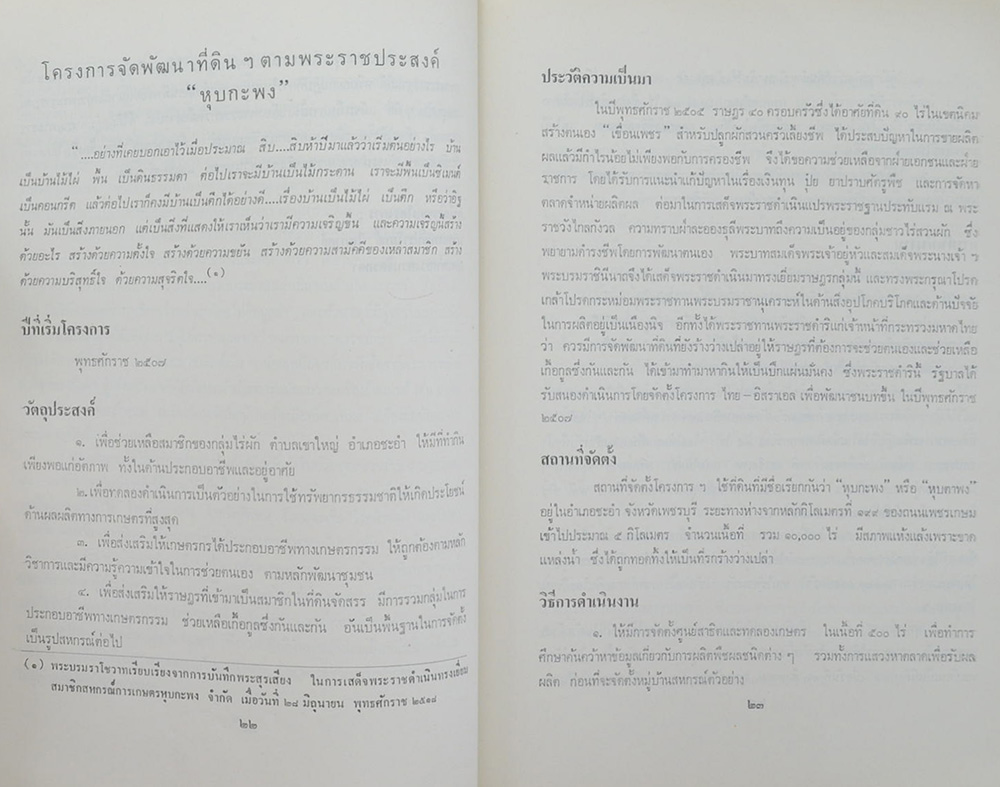 โครงการจัดพัฒนาที่ดิน ฯ ตามพระราชประสงค์
“หุบกะพง”
“ ....อย่างที่เคยบอกเอาไว้เมื่อประมาณ สิบ....สิบห้าปีมาแล้วว่าเริ่มต้นอย่างไร บ้าน
เป็นบ้านไม้ไผ่ พื้น เป็นดินธรรมดา ต่อไปเราจะมีบ้านเป็นไม้กระดาน เราจะมีพื้นเป็นซิเมนต์
เป็นคอนกรีต แล้วต่อไปเราก็คงมีบ้านเป็นตึกได้อย่างดี....เรื่องบ้านเป็นไม้ไผ่ เป็นตึก หรือว่าอิฐ
นั้น มันเป็นสิ่งภายนอก แต่เป็นสิ่งที่แสดงให้เราเห็นว่าเรามีความเจริญขึ้น และความเจริญนี้สร้าง
ด้วยอะไร สร้างด้วยความตั้งใจ สร้างด้วยความขยัน สร้างด้วยความสามัคคีของเหล่าสมาชิก สร้าง
ด้วยความบริสุทธิ์ใจ ด้วยความสุจริตใจ....(๑)
ปีที่เริ่มโครงการ
พุทธศักราช ๒๕๐๗
วัตถุประสงค์
๑. เพื่อช่วยเหลือสมาชิกของกลุ่มไร่ผัก ตำบลเขาใหญ่ อำเภอชะอำ ให้มีที่ทำกิน
เพียงพอแก่อัตภาพ ทั้งในด้านประกอบอาชีพและอยู่อาศัย
๒. เพื่อทดลองดำเนินการเป็นตัวอย่างในการใช้ทรัพยากรธรรมชาติให้เกิดประโยชน์
ด้านผลผลิตทางการเกษตรที่สูงสุด
๓. เพื่อส่งเสริมให้เกษตรกรได้ประกอบอาชีพทางเกษตรกรรม ให้ถูกต้องตามหลัก
วิชาการและมีความรู้ความเข้าใจในการช่วยตนเอง ตามหลักพัฒนาชุมชน
๔. เพื่อส่งเสริมให้ราษฎรที่เข้ามาเป็นสมาชิกในที่ดินจัดสรร มีการรวมกลุ่มในการ
ประกอบอาชีพทางเกษตรกรรม ช่วยเหลือเกื้อกูลซึ่งกันและกัน อันเป็นพื้นฐานในการจัดตั้ง
เป็นรูปสหกรณ์ต่อไป
(๑) พระบรมราโชวาทเรียบเรียงจากการบันทึกพระสุรเสียง ในการเสด็จพระราชดำเนินทรงเยี่ยม
สมาชิกสหกรณ์การเกษตรหุบกะพง จำกัด เมื่อวันที่ ๒๘ มิถุนายน พุทธศักราช ๒๕๑๘
๒๒
ประวัติความเป็นมา
ในปีพุทธศักราช ๒๕๐๕ ราษฎร ๔๐ ครอบครัวซึ่งได้อาศัยที่ดิน ๙๐ ไร่ในเขตนิคม
สร้างตนเอง “เขื่อนเพชร” สำหรับปลูกผักสวนครัวเลี้ยงชีพ ได้ประสบปัญหาในการขายผลิต
ผลแล้วมีกำไรน้อยไม่เพียงพอกับการครองชีพ จึงได้ขอความช่วยเหลือจากฝ่ายเอกชนและฝ่าย
ราชการ โดยได้รับการแนะนำแก้ปัญหาในเรื่องเงินทุน ปุ๋ย ยาปราบศัตรูพืช และการจัดหา
ตลาดจำหน่ายผลิตผล ต่อมาในการเสด็จพระราชดำเนินแปรพระราชฐานประทับแรม ณ พระ
ราชวังไกลกังวล ความทราบฝ่าละอองธุลีพระบาทถึงความเป็นอยู่ของกลุ่มชาวไร่สวนผัก ซึ่ง
พยายามดำรงชีพโดยการพัฒนาตนเอง พระบาทสมเด็จพระเจ้าอยู่หัวและสมเด็จพระนางเจ้า ฯ
พระบรมราชินีนาถจึงได้เสด็จพระราชดำเนินมาทรงเยี่ยมราษฎรกลุ่มนี้ และทรงพระกรุณาโปรด
เกล้าโปรดกระหม่อมพระราชทานพระบรมราชานุเคราะห์ในด้านสิ่งอุปโภคบริโภคและด้านปัจจัย
ในการผลิตอยู่เป็นเนืองนิจ อีกทั้งได้พระราชทานพระราชดำริแก่เจ้าหน้าที่กระทรวงมหาดไทย
ว่า ควรมีการจัดพัฒนาที่ดินที่ยังร้างว่างเปล่าอยู่ให้ราษฎรที่ต้องการจะช่วยตนเองและช่วยเหลือ
เกื้อกูลซึ่งกันและกัน ได้เข้ามาทำมาหากินให้เป็นปึกแผ่นมั่นคง ซึ่งพระราชดำรินี้ รัฐบาลได้
รับสนองดำเนินการโดยจัดตั้งโครงการ ไทย - อิสราเอล เพื่อพัฒนาชนบทขึ้น ในปีพุทธศักราช
๒๕๐๗
สถานที่จัดตั้ง
สถานที่จัดตั้งโครงการ ฯ ใช้ที่ดินที่มีชื่อเรียกกันว่า “หุบกะพง” หรือ “หุบตาพง”
อยู่ในอำเภอชะอำ จังหวัดเพชรบุรี ระยะทางห่างจากหลักกิโลเมตรที่ ๑๙๙ ของถนนเพชรเกษม
เข้าไปประมาณ ๕ กิโลเมตร จำนวนเนื้อที่ รวม ๑๐,๐๐๐ ไร่ มีสภาพแห้งแล้งเพราะขาด
แหล่งน้ำ ซึ่งได้ถูกทอดทิ้งให้เป็นที่รกร้างว่างเปล่า
วิธีการดำเนินงาน
๑. ให้มีการจัดตั้งศูนย์สาธิตและทดลองเกษตร ในเนื้อที่ ๕๐๐ ไร่ เพื่อทำการ
ศึกษาค้นคว้าหาข้อมูลเกี่ยวกับการผลิตพืชผลชนิดต่าง ๆ รวมทั้งการแสวงหาตลาดเพื่อรับผล
ผลิต ก่อนที่จะจัดตั้งหมู่บ้านสหกรณ์ตัวอย่าง
๒๓